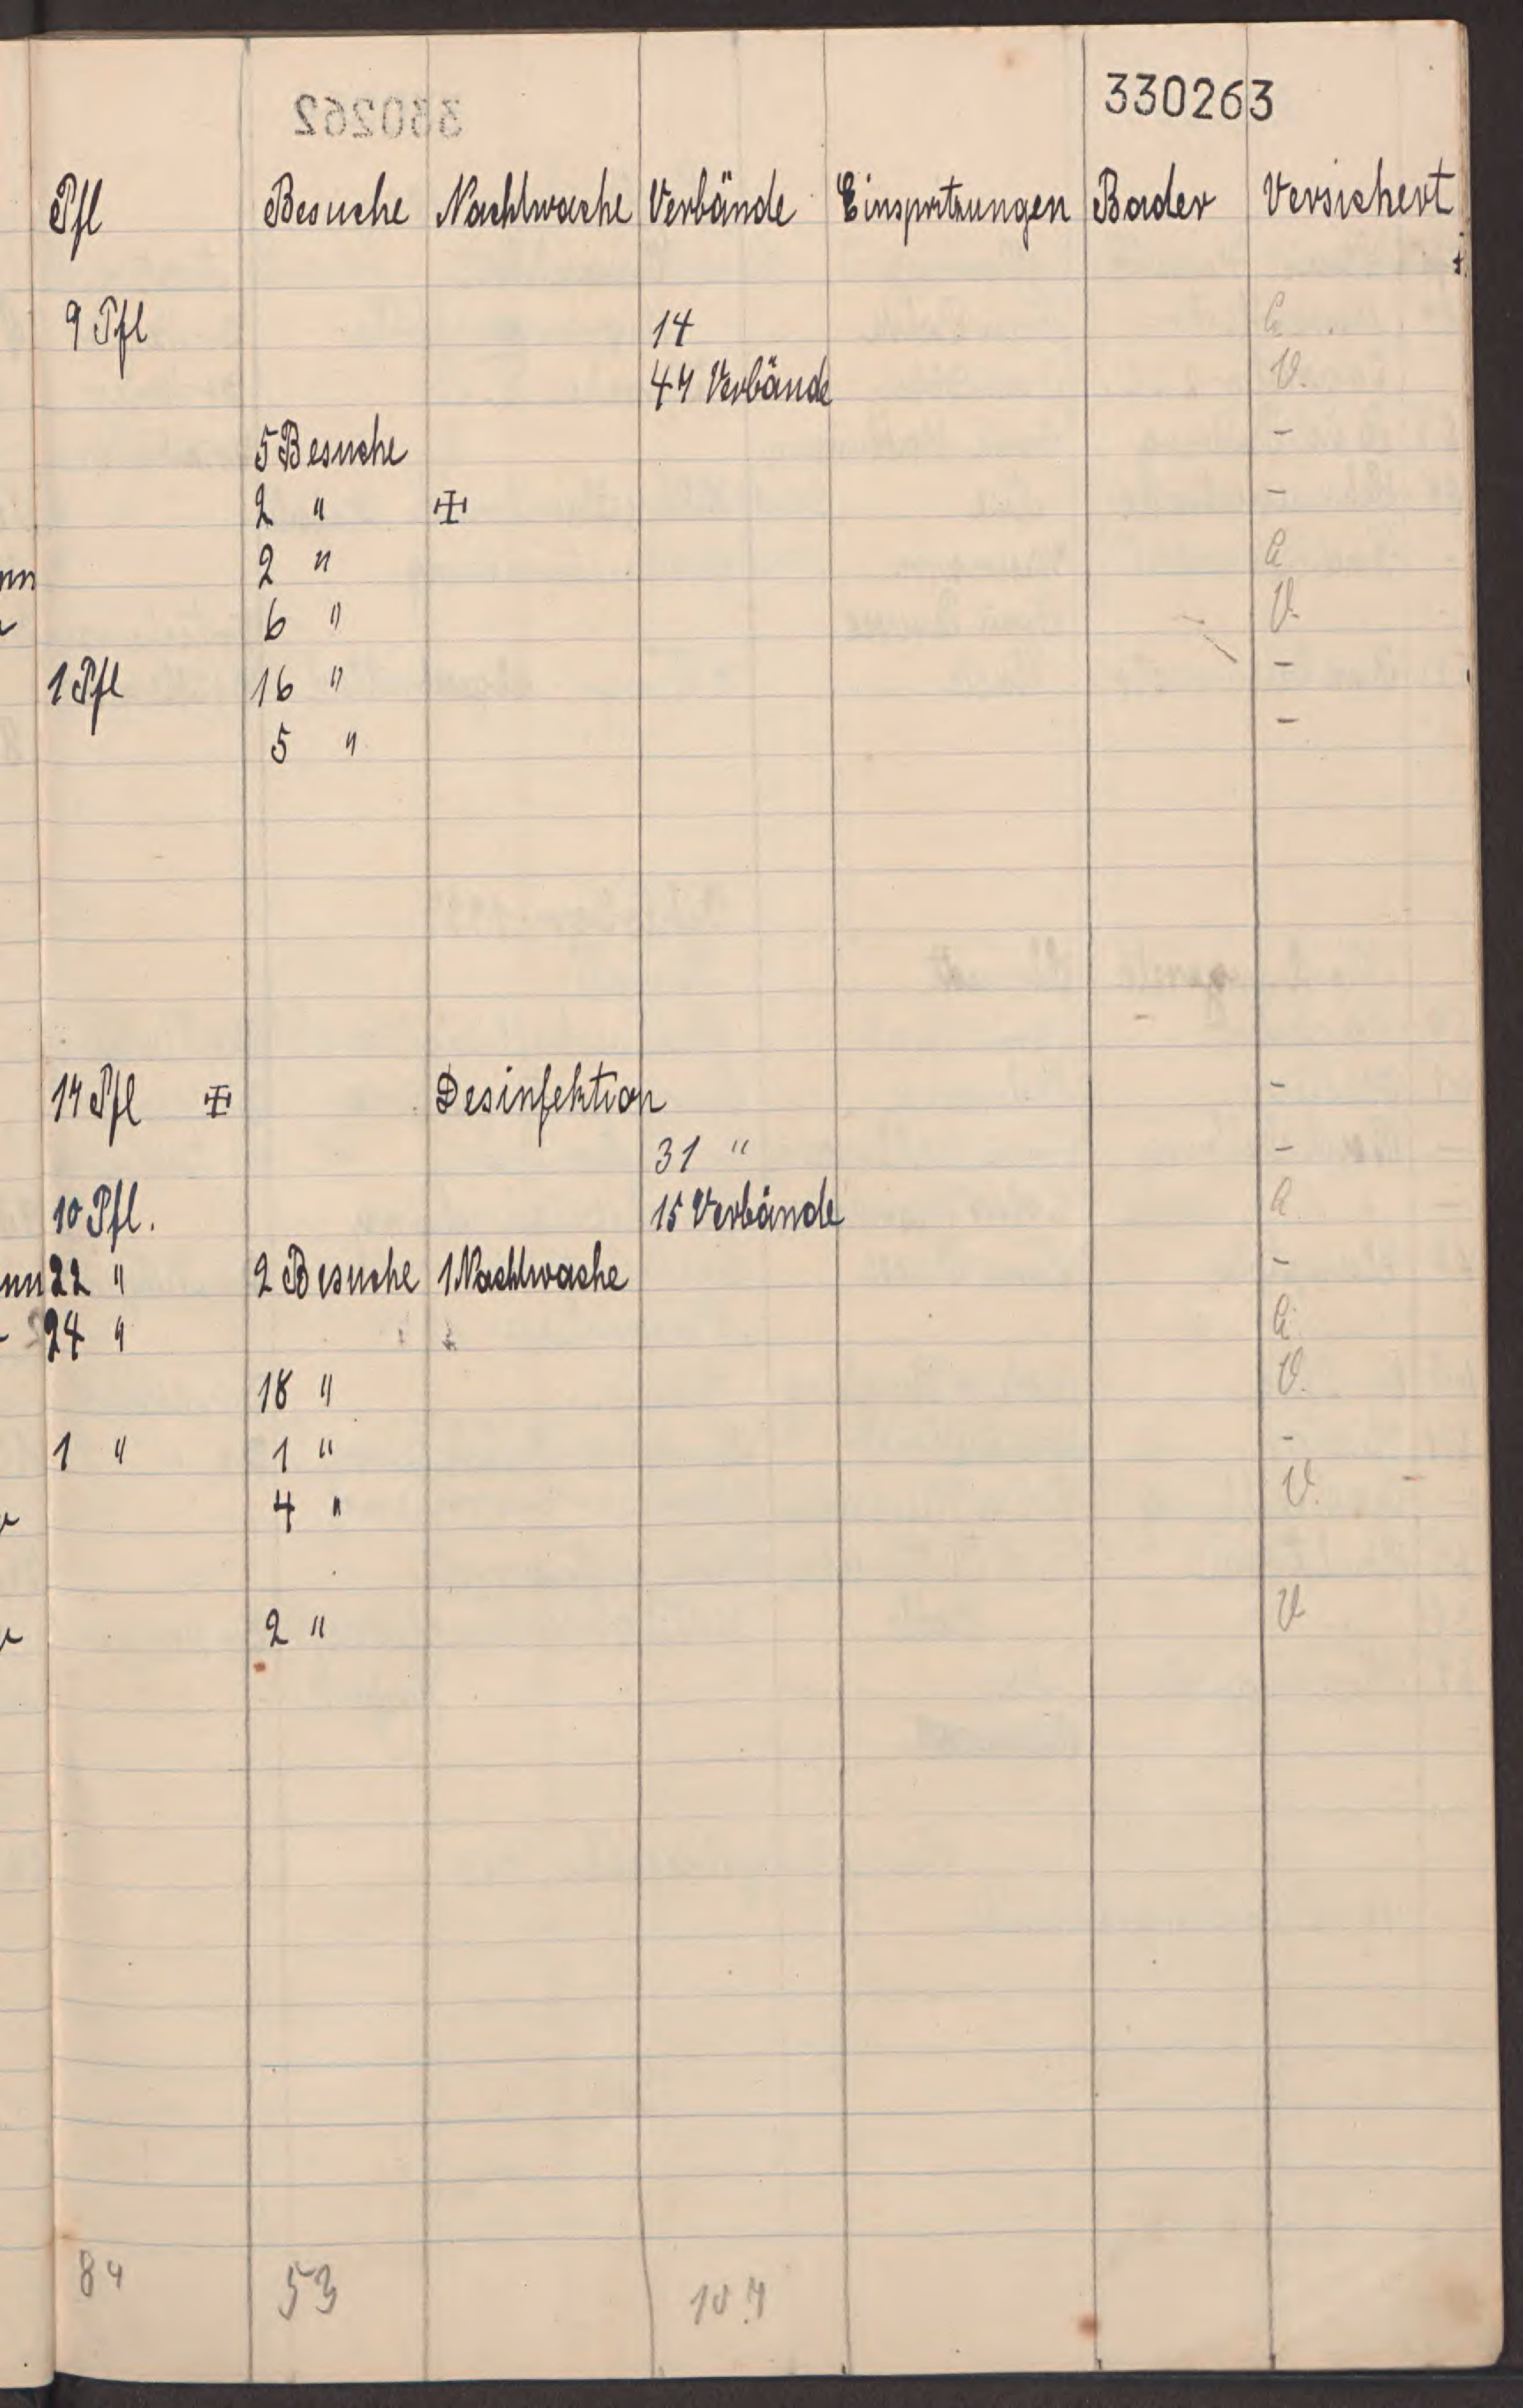 330263
Pfl Besuche Nachtwache Verbände Einspritzungen Bäder Versichert
9 Pfl 14
47 Verbände V.
5 Besuche -
2 " -
2 "
6 " V.
1 Pfl 16 " -
5 " -
17 Pfl Desinfektion -
31 " -
10 Pfl. 15 Verbände
22 " 2 Besuche 1 Nachtwache -
24 "
18 " V.
1 " 1 " -
4 " V.
2 " V
84 53 107